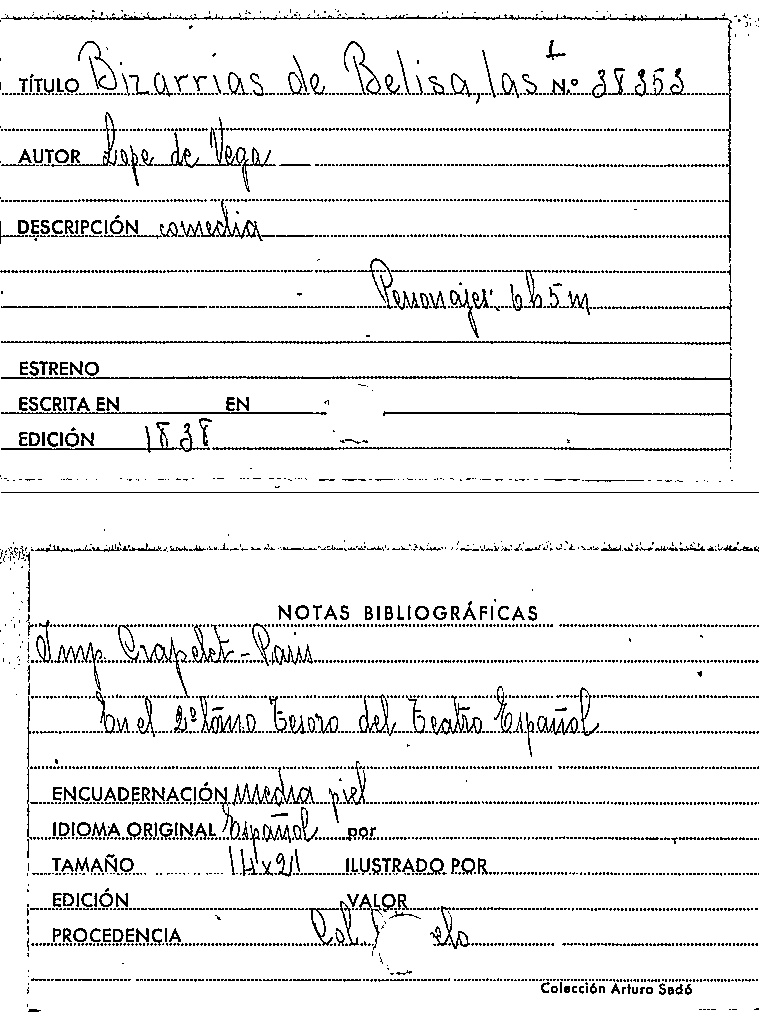 TÍTULO Bizarrias de Belisa, las N.º 38353
AUTOR Lope de Vega
DESCRIPCIÓN comedia
Personajes: 6h 5m
ESTRENO
ESCRITA EN EN
EDICIÓN 1838
NOTAS BIBLIOGRÁFICAS
Imp Crapelet - Paris
En el 2º tomo Tesoro del Teatro Español
ENCUADERNACIÓN media piel
IDIOMA ORIGINAL Español por
TAMAÑO 14x21 ILUSTRADO POR
EDICIÓN VALOR
PROCEDENCIA Col.
Colección Arturo Sedó